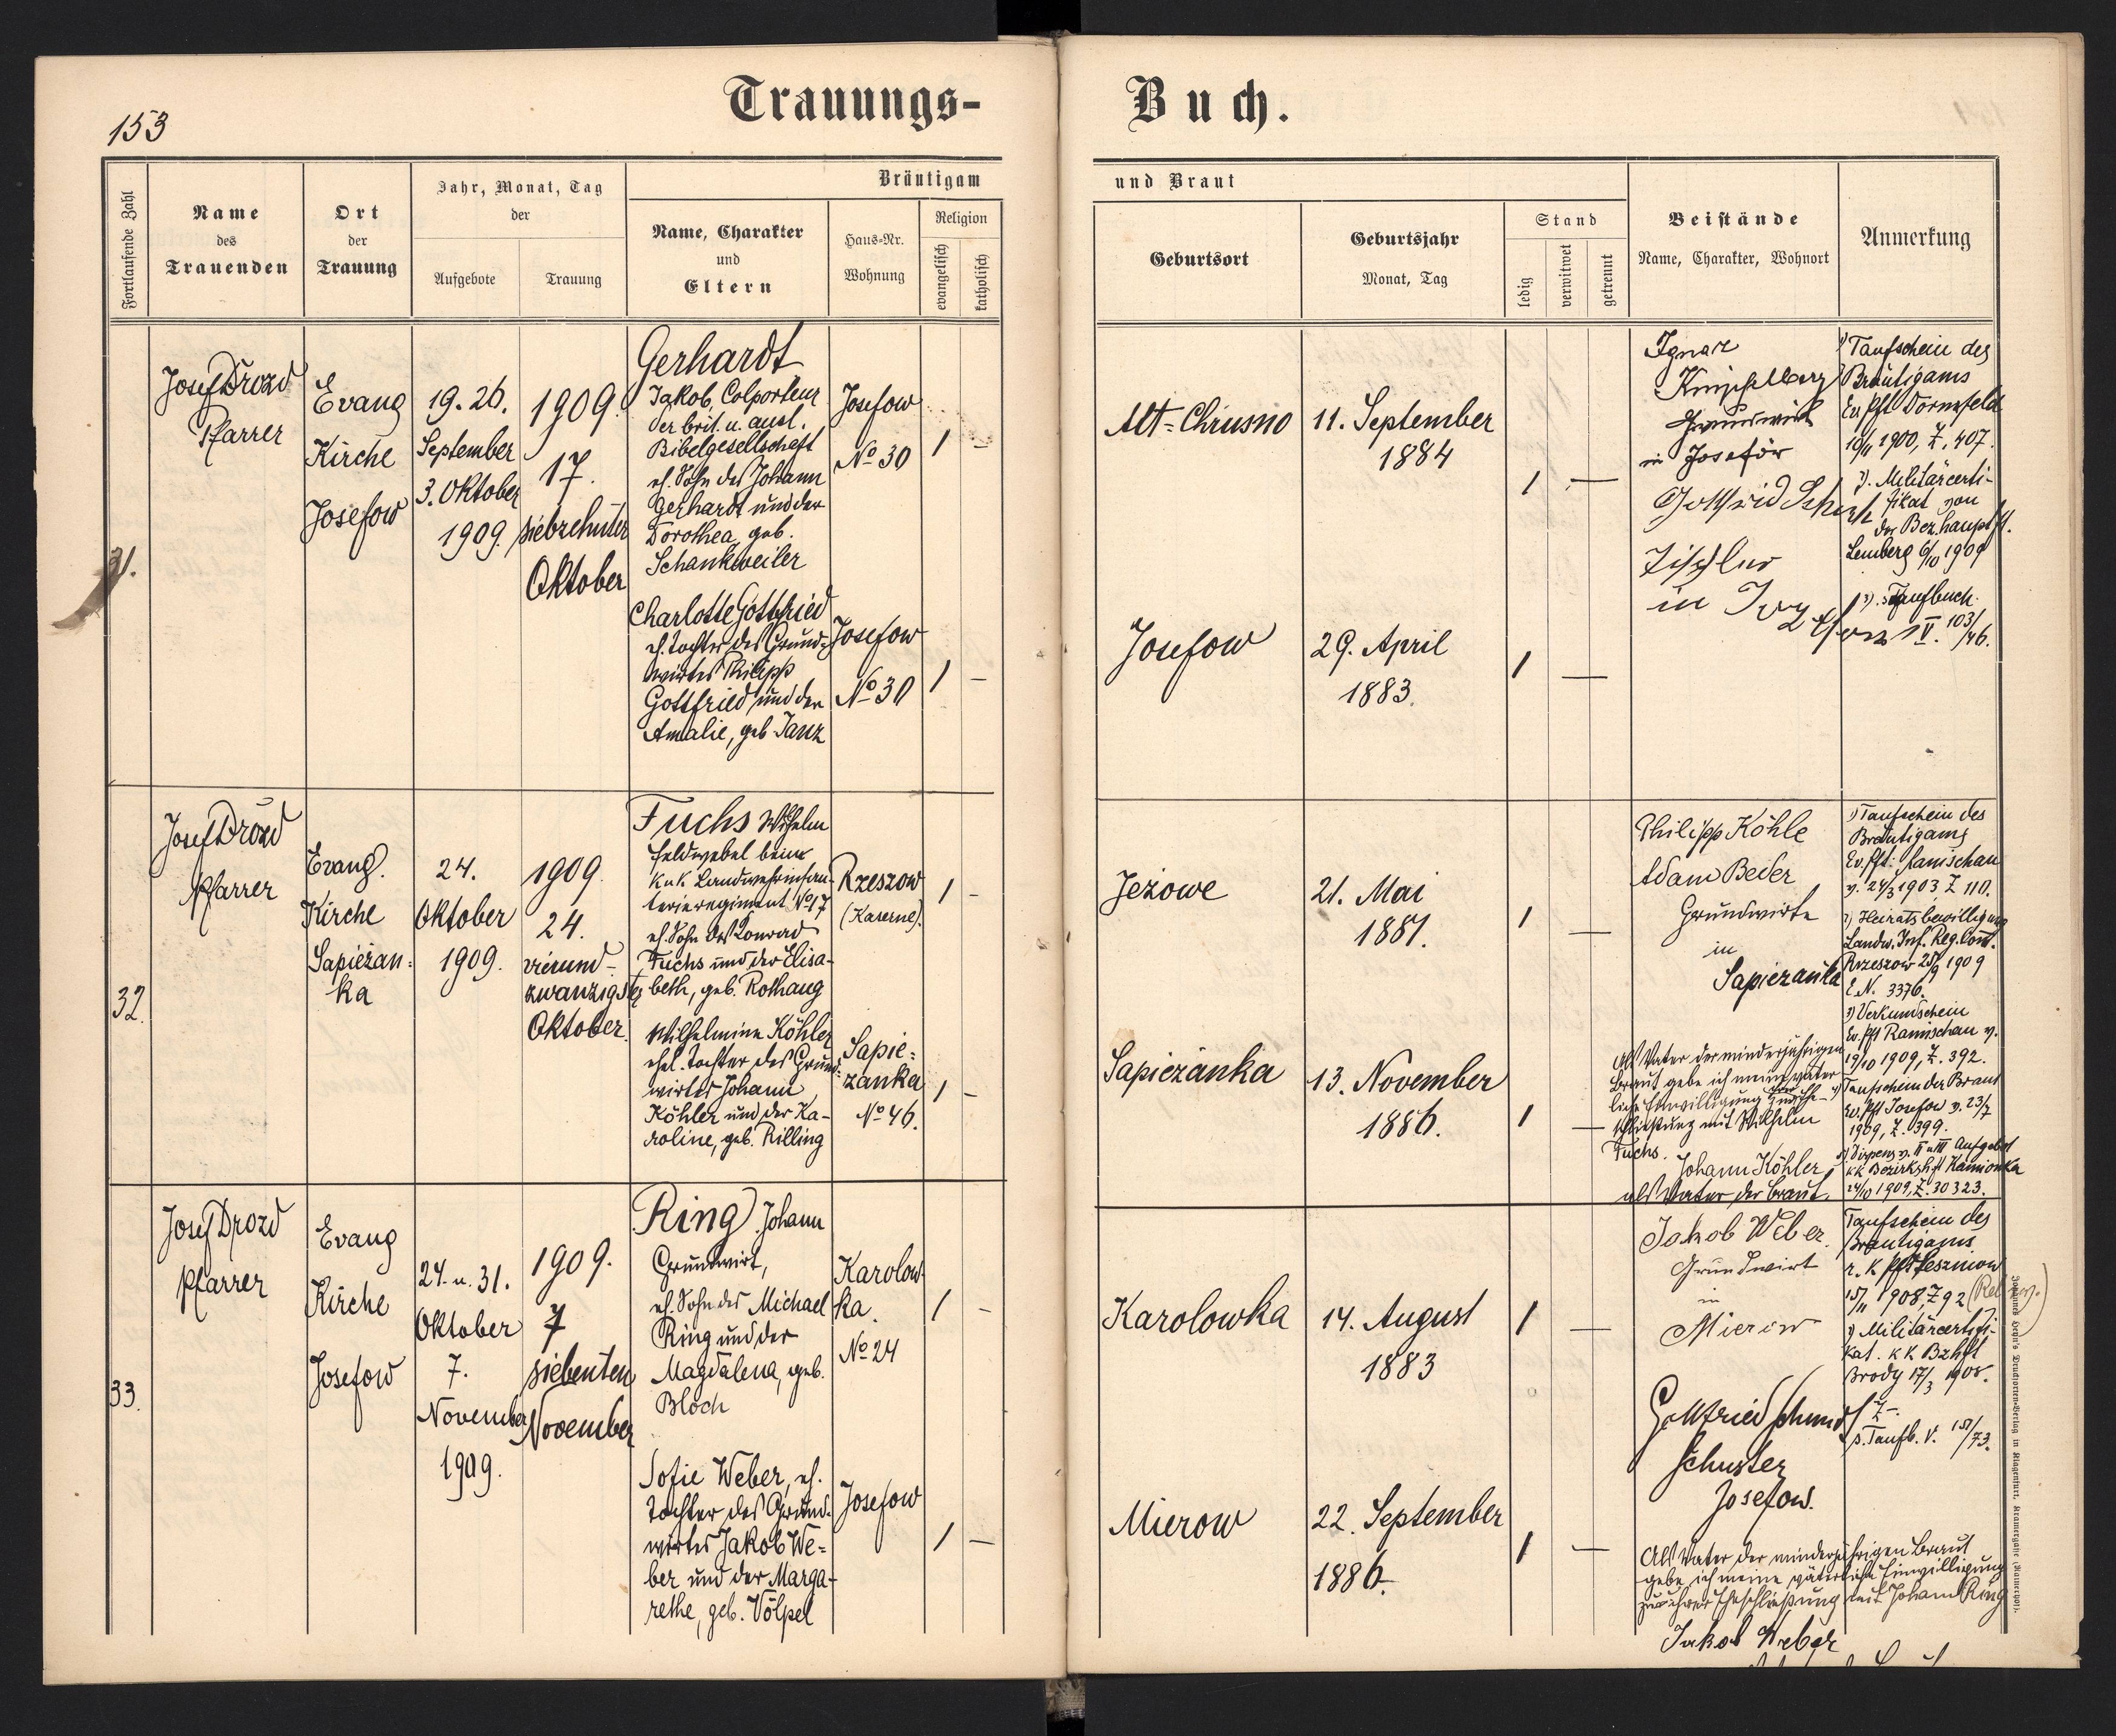 153
Trauungs-
Buch.
Fortlaufende Zahl
Name
des
Trauenden
Ort
der
Trauung
Jahr, Monat, Tag
der
Aufgebote
Trauung
Bräutigam
Name, Charakter
und
Eltern
Haus-Nr.
Wohnung
Religion
evangelisch
katholisch
und Braut
Geburtsort
Geburtsjahr
Monat, Tag
Stand
ledig
verwitwet
getrennt
Beistände
Name, Charakter, Wohnort
Anmerkung
31.
Josef Drozd
Pfarrer
Evang
Kirche
Josefow
19. 26.
September
3. Oktober
1909.
1909.
17.
siebzehnter
Oktober
Gerhardt
Jakob, Colporteur
der brit. u. ausl.
Bibelgesellschaft
eh. Sohn des Johann
Gerhardt und der
Dorothea, geb.
Schankweiler
Josefow
No 30
1 -
Charlotte Gottfried
eh. Tochter des Grund-
wirtes Philipp
Gottfried und der
Amalie, geb. Janz
Josefow
No 30
1 -
Alt-Chrusno
11. September
1884
1 —
Josefow
29. April
1883.
1 —
Ignaz
Grundwirt
in Josefów
Gottfried
Tischler
in
1) Taufschein des
Bräutigams
Ev. Pft Dornfeld
1900, Z. 407.
2). Militärcerti-
fikat von
der Bez. hauptft.
Lemberg 6/10 1909
3). Taufbuch
V. 103/46.
32.
Josef Drozd
Pfarrer
Evang.
Kirche
Sapiezan-
ka
24.
Oktober
1909.
1909
24.
vierund-
zwanzigster
Oktober.
Fuchs Wilhelm
Feldwebel beim
k. u k. Landwehrinfan-
terieregiment No 17
eh. Sohn des Konrad
Fuchs und der Elisa-
beth, geb. Rothaug
Rzeszow
(Kaserne).
1 -
Wilhelmine Köhler
ehel. Tochter des Grund-
wirtes Johann
Köhler und der Ka-
roline, geb. Rilling
Sapie-
zanka
No 46.
1 -
Jeżowe
21. Mai
1881.
1 —
Sapiezanka
13. November
1886.
1 —
Philipp Köhle
Adam Beder
Grundwirte
in
Sapiezanka
Als Vater der minderjährigen
Braut gebe ich meine väter-
liche Einwilligung zur Ehe-
schließung mit Wilhelm
Fuchs.
Johann Köhler
als Vater der Braut.
1) Taufschein des
Bräutigams
Ev. Pft. Ranischau
v. 24/3 1903, Z 110.
2) Heiratsbewilligung
Landw. Inf. Reg. Com.
Rzeszow 25/9 1909
E.N. 3376.
3) Verkündschein
Ev. Pft Ranischau v.
19/10 1909, Z. 392.
4) Taufschein der Braut
Ev. Pft Josefow v. 23/7
1909, Z. 399.
5) Dispens v. II u III Aufgebot
kk Bezirkshft Kamionka
24/10 1909, Z. 30323.
33.
Josef Drozd
Pfarrer
Evang
Kirche
Josefow
24. u. 31.
Oktober
7.
November
1909.
1909.
7
siebenten
November
Ring Johann
Grundwirt,
eh. Sohn des Michael
Ring und der
Magdalena, geb.
Bloch
Karolow-
ka.
No 24
1 -
Sofie Weber, eh.
Tochter des Grund-
wirtes Jakob We-
ber und der Marga-
rethe, geb. Völpel
Josefow
1 —
Karolowka
14. August
1883
1 —
Mierow
22. September
1886.
1 —
Jakob Weber
Grundwirt
in
Mierow
Gottfried Schmidt
Schuster
Josefow.
Als Vater der minderjährigen Braut
gebe ich meine väterliche Einwilligung
zur ihrer Eheschließung mit Johann Ring
Jakob Weber
Taufschein des
Bräutigams
r. k Pft Leszniow
15/11 1908, Z 92
2) Militärcertifi-
kat. k k Bzhft
Brody 17/3 1908.
s. Taufb. V. 151/73.